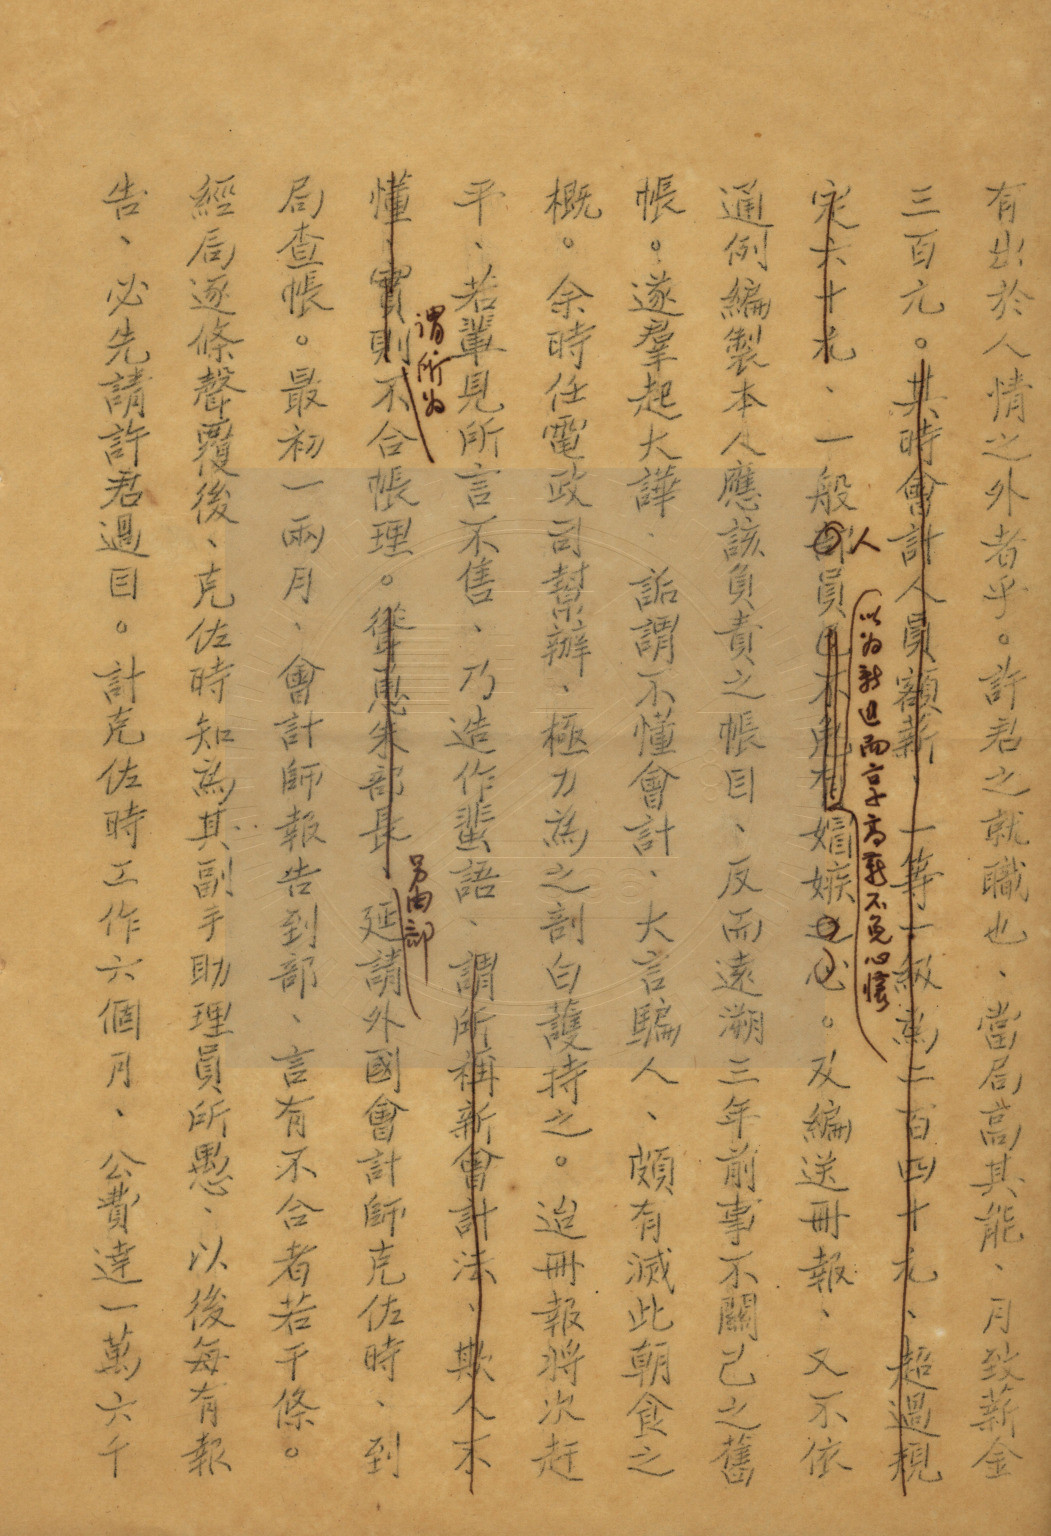 有出於人情之外者乎。許君之就職也、當局高其能、月致薪金
三百元。其時會計人員額薪、一等一級為二百四十元、超過規
定六十元、一般部員已不免有媢嫉之心。及編送冊報、又不依
人
以為新進而享高薪不免心懷
通例編製本人應該負責之帳目、反而遠溯三年前事不關己之舊
帳。遂羣起大譁、詬謂不懂會計、大言騙人、頗有滅此朝食之
概。余時任電政司幫辦、極力為之剖白護持之。迨冊報將次赶
平、若輩見所言不售、乃造作蜚語、謂所稱新會計法、欺人不
謂所為
懂、實則不合帳理。慫恿朱部長、延請外國會計師克佐時、到
另由部
局查帳。最初一兩月、會計師報告到部、言有不合者若干條。
經局逐條聲覆後、克佐時知為其副手助理員所愚、以後每有報
告、必先請許君過目。計克佐時工作六個月、公費達一萬六千